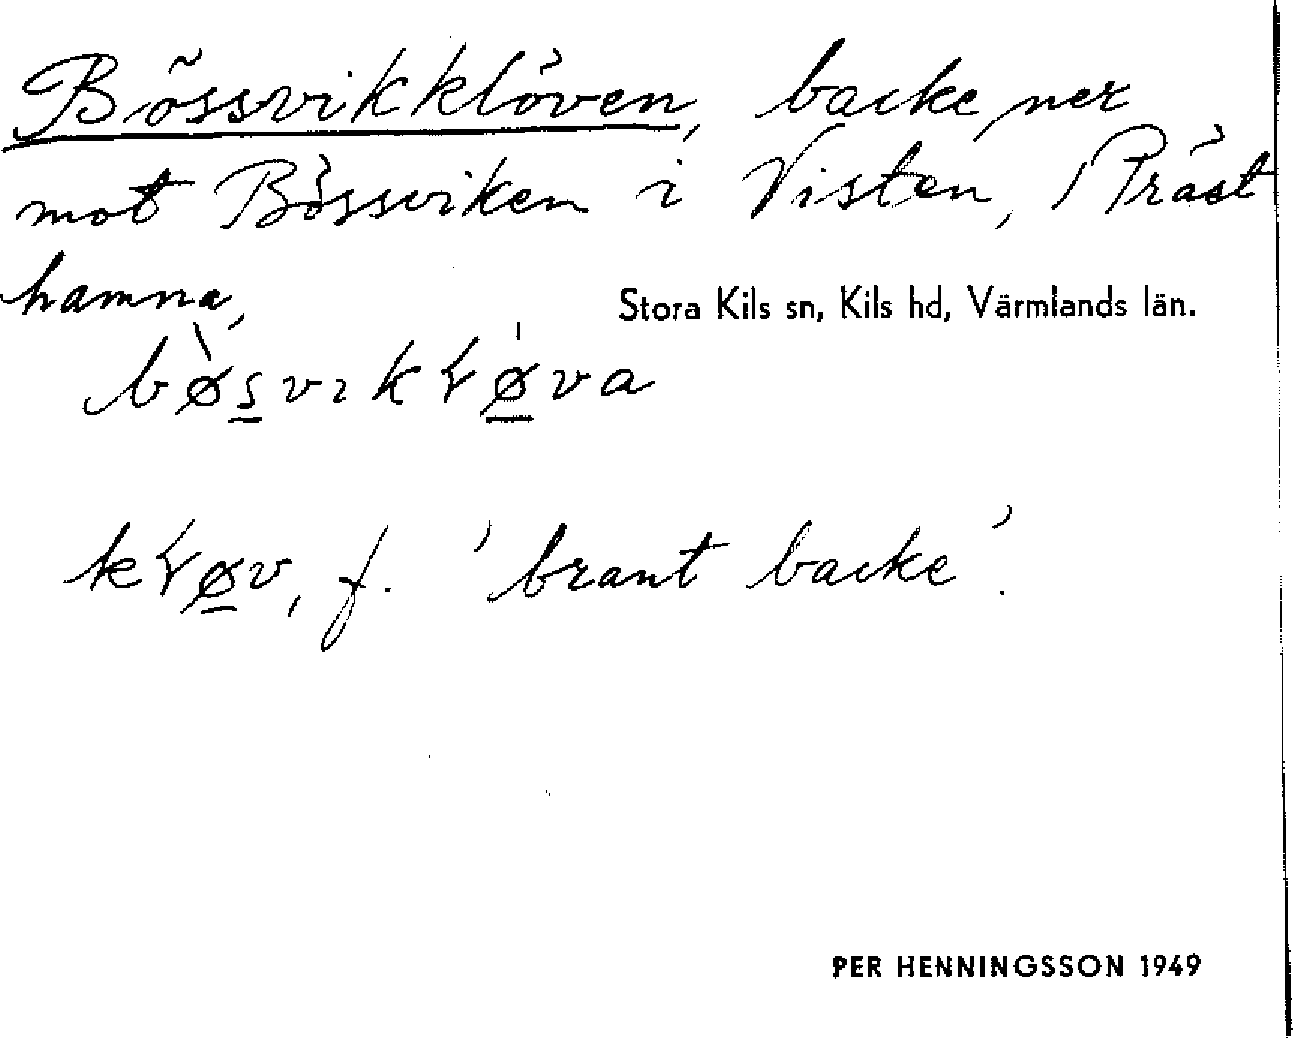 Bössvikklöven, backe ner
mot Bössviken i Visten, Präst
hamna,
Stora Kils sn, Kils hd, Värmlands län.
bø̀s̲vɪkɽǿ̲va
kɽø̲v, f. 'brant backe'.
PER HENNINGSSON 1949